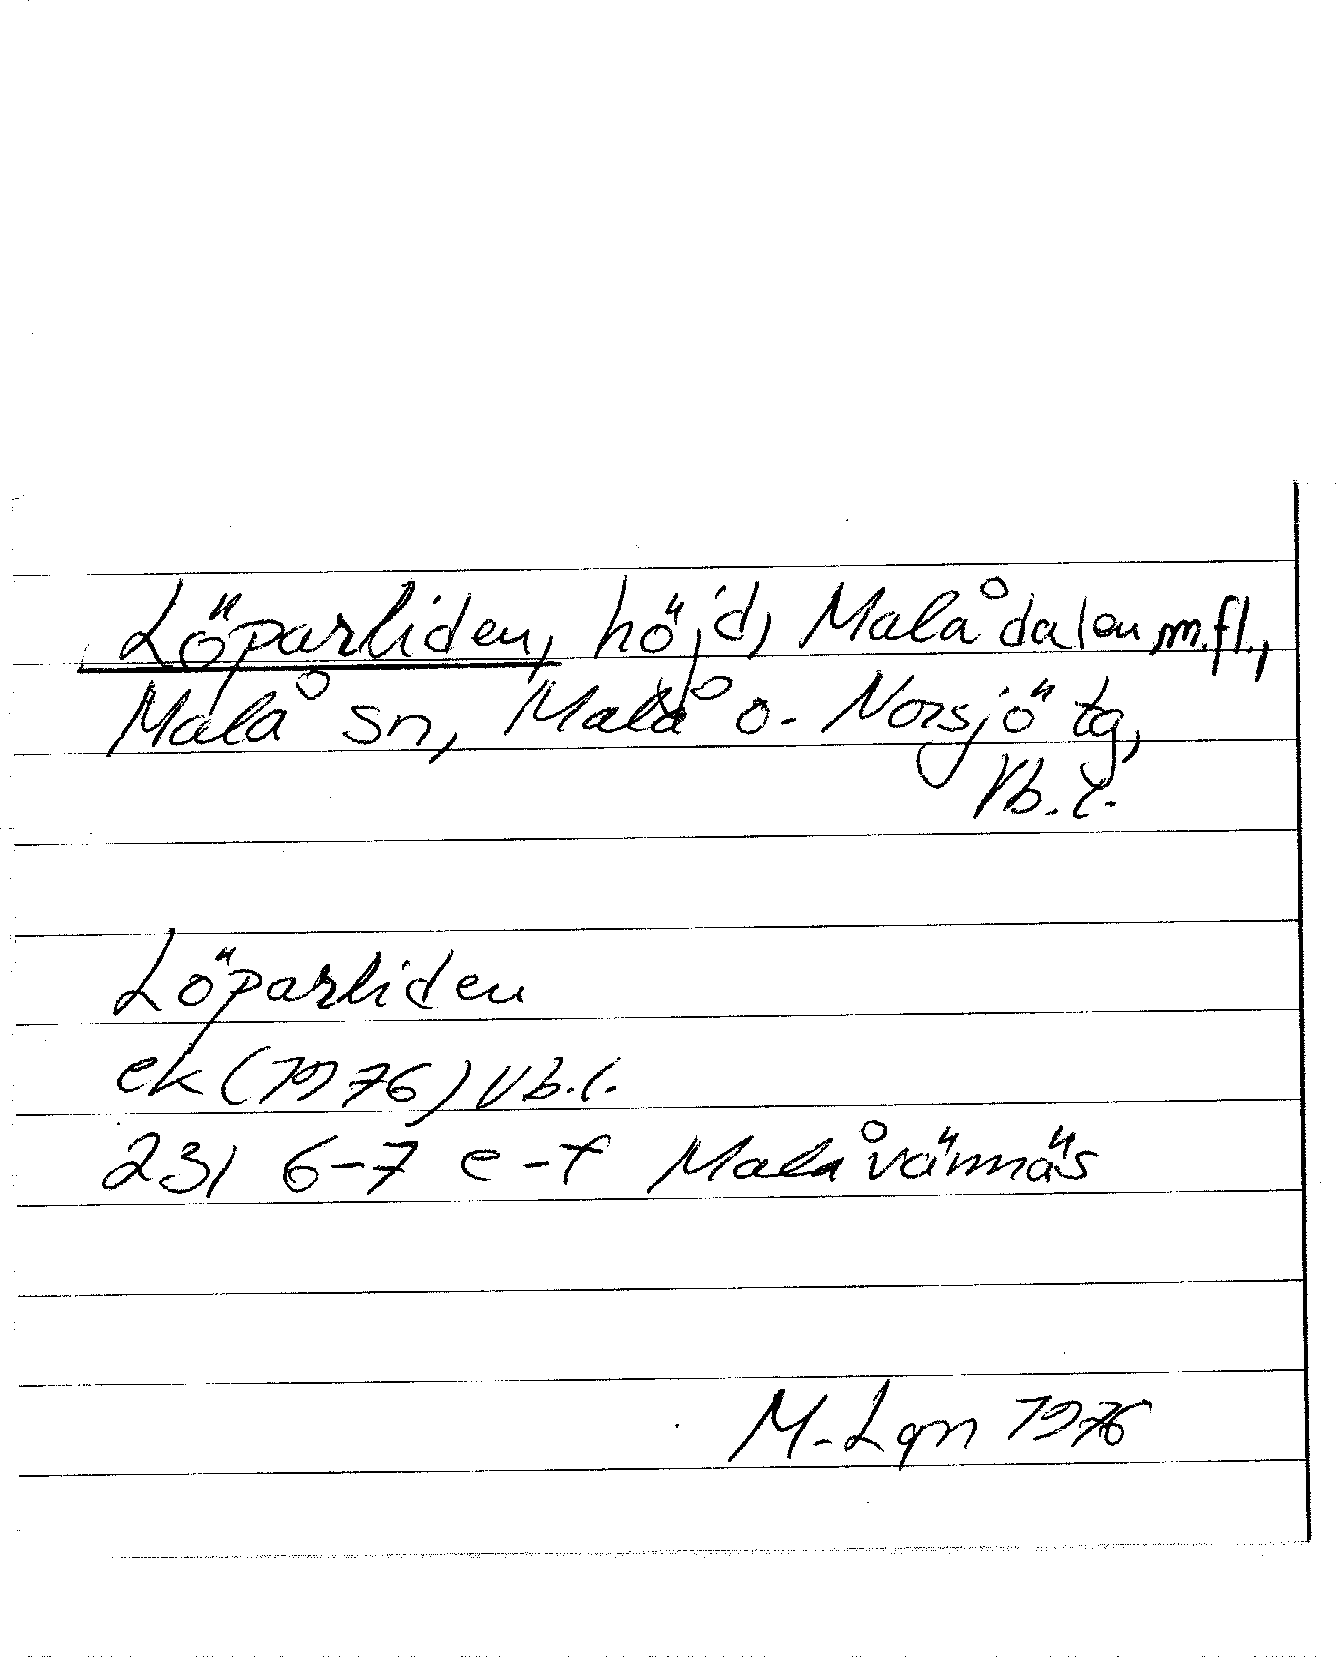 Löparliden, höjd, Malådalen m.fl.,
Malå sn, Malå o. Norsjö tg,
Vb.l.
Löparliden
ek (1976) Vb.l.
231 6-7 e-f Malåvännäs
M-Lgn 1976